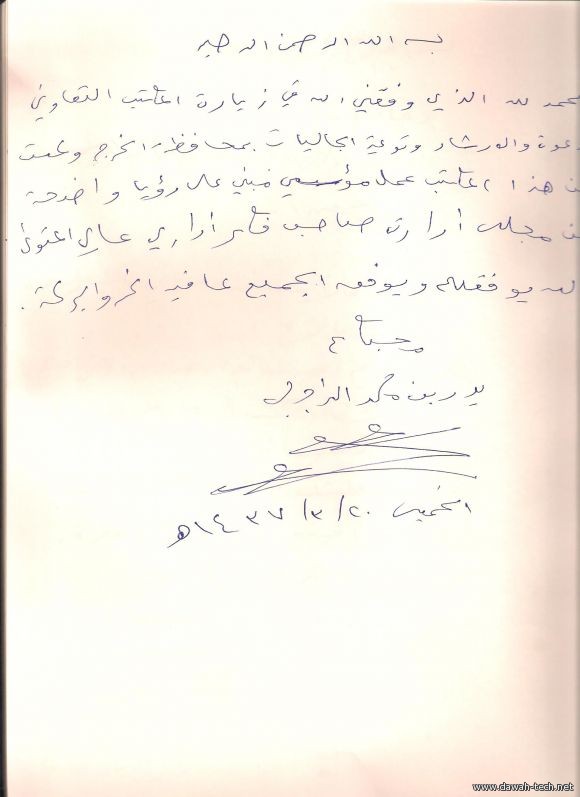 بسم الله الرحمن الرحيم
الحمد لله الذي وفقني الله في زيارة المكتب التعاوني
دعوة والارشاد وتوعية الجاليات بمحافظة الخرج
هذا المكتب عمله مؤسسي مبني على رؤيا واضحة
مجلس ادارة صاحب فكر اداري عالي المستوى
الله يوفقكم ويوفق الجميع الخير والبركة .
محبكم
محمد الراجحي
الخميس ٢٠/٣/١٤٣٧هـ
www.dawah-tech.net